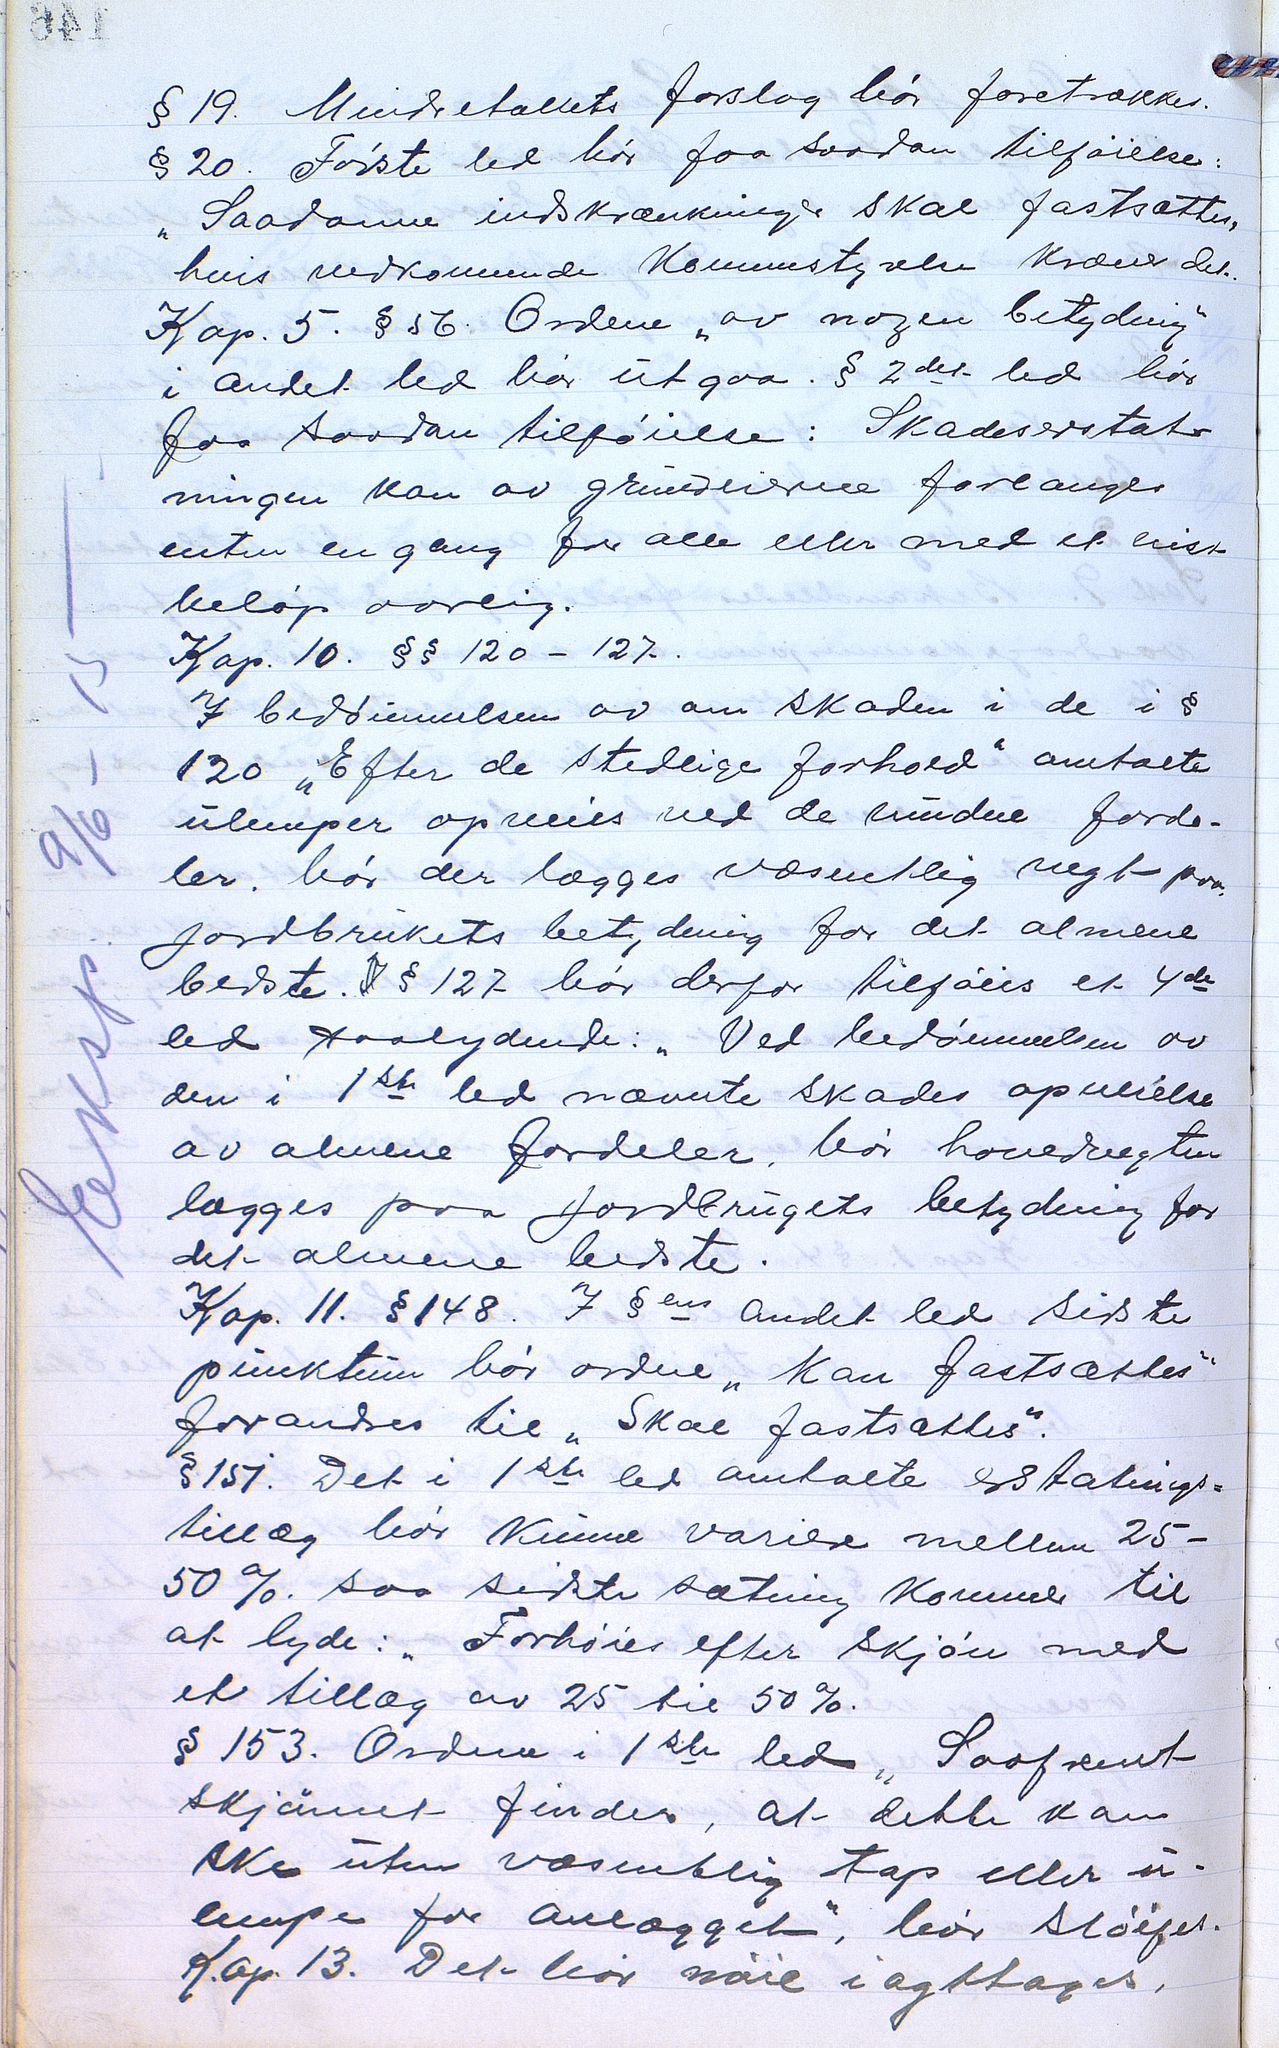 § 19. Mindretallets forslag bør foretrækkes.
§ 20. Første led bør faa saadan tilføielse:
„Saadanne indskrænkninger skal fastsættes,
hvis vedkommende Kommunestyrelse kræver det.
Kap. 5. § 56. Ordene „av nogen betydning"
i andet led bør utgaa. § 2det led bør
faa saadan tilføielse: Skadeserstat-
ningen kan av grundeierne forlanges
enten en gang for alle eller med et visst
beløp aarlig.
Kap. 10. §§ 120 – 127.
I bedømmelsen av om skaden i de i §
120 „Efter de stedlige forhold" omtalte
ulemper opveies ved de vundne forde-
ler. bør der lægges væsentlig vegt paa
jordbrukets betydning for det almene
bedste. I § 127 bør derfor tilføies et 4de
led saalydende: „Ved bedømmelsen av
den i 1ste led nævnte skades opveielse
av almene fordeler, bør hovedvegten
lægges paa jordbrugets betydning for
det almene bedste.
Kap. 11. § 148. I §ens andet led sidste
punktum bør ordne „kan fastsættes"
forandres til „Skal fastsættes".
§ 151. Det i 1ste led omtalte erstatnings-
tillæg bør kunne variere mellem 25–
50 %. saa sidste sætning kommer til
at lyde: „Forhøies efter skjøn med
et tillæg av 25 til 50 %.
§ 153. Ordene i 1ste led „Saafremt
skjønnet finder, at dette kan
ske uten væsentlig tap eller u-
lempe for anlægget", bør sløifes.
Kap. 13. Det bør nøie iagttages,
Eksp. 9/6 – 15
146